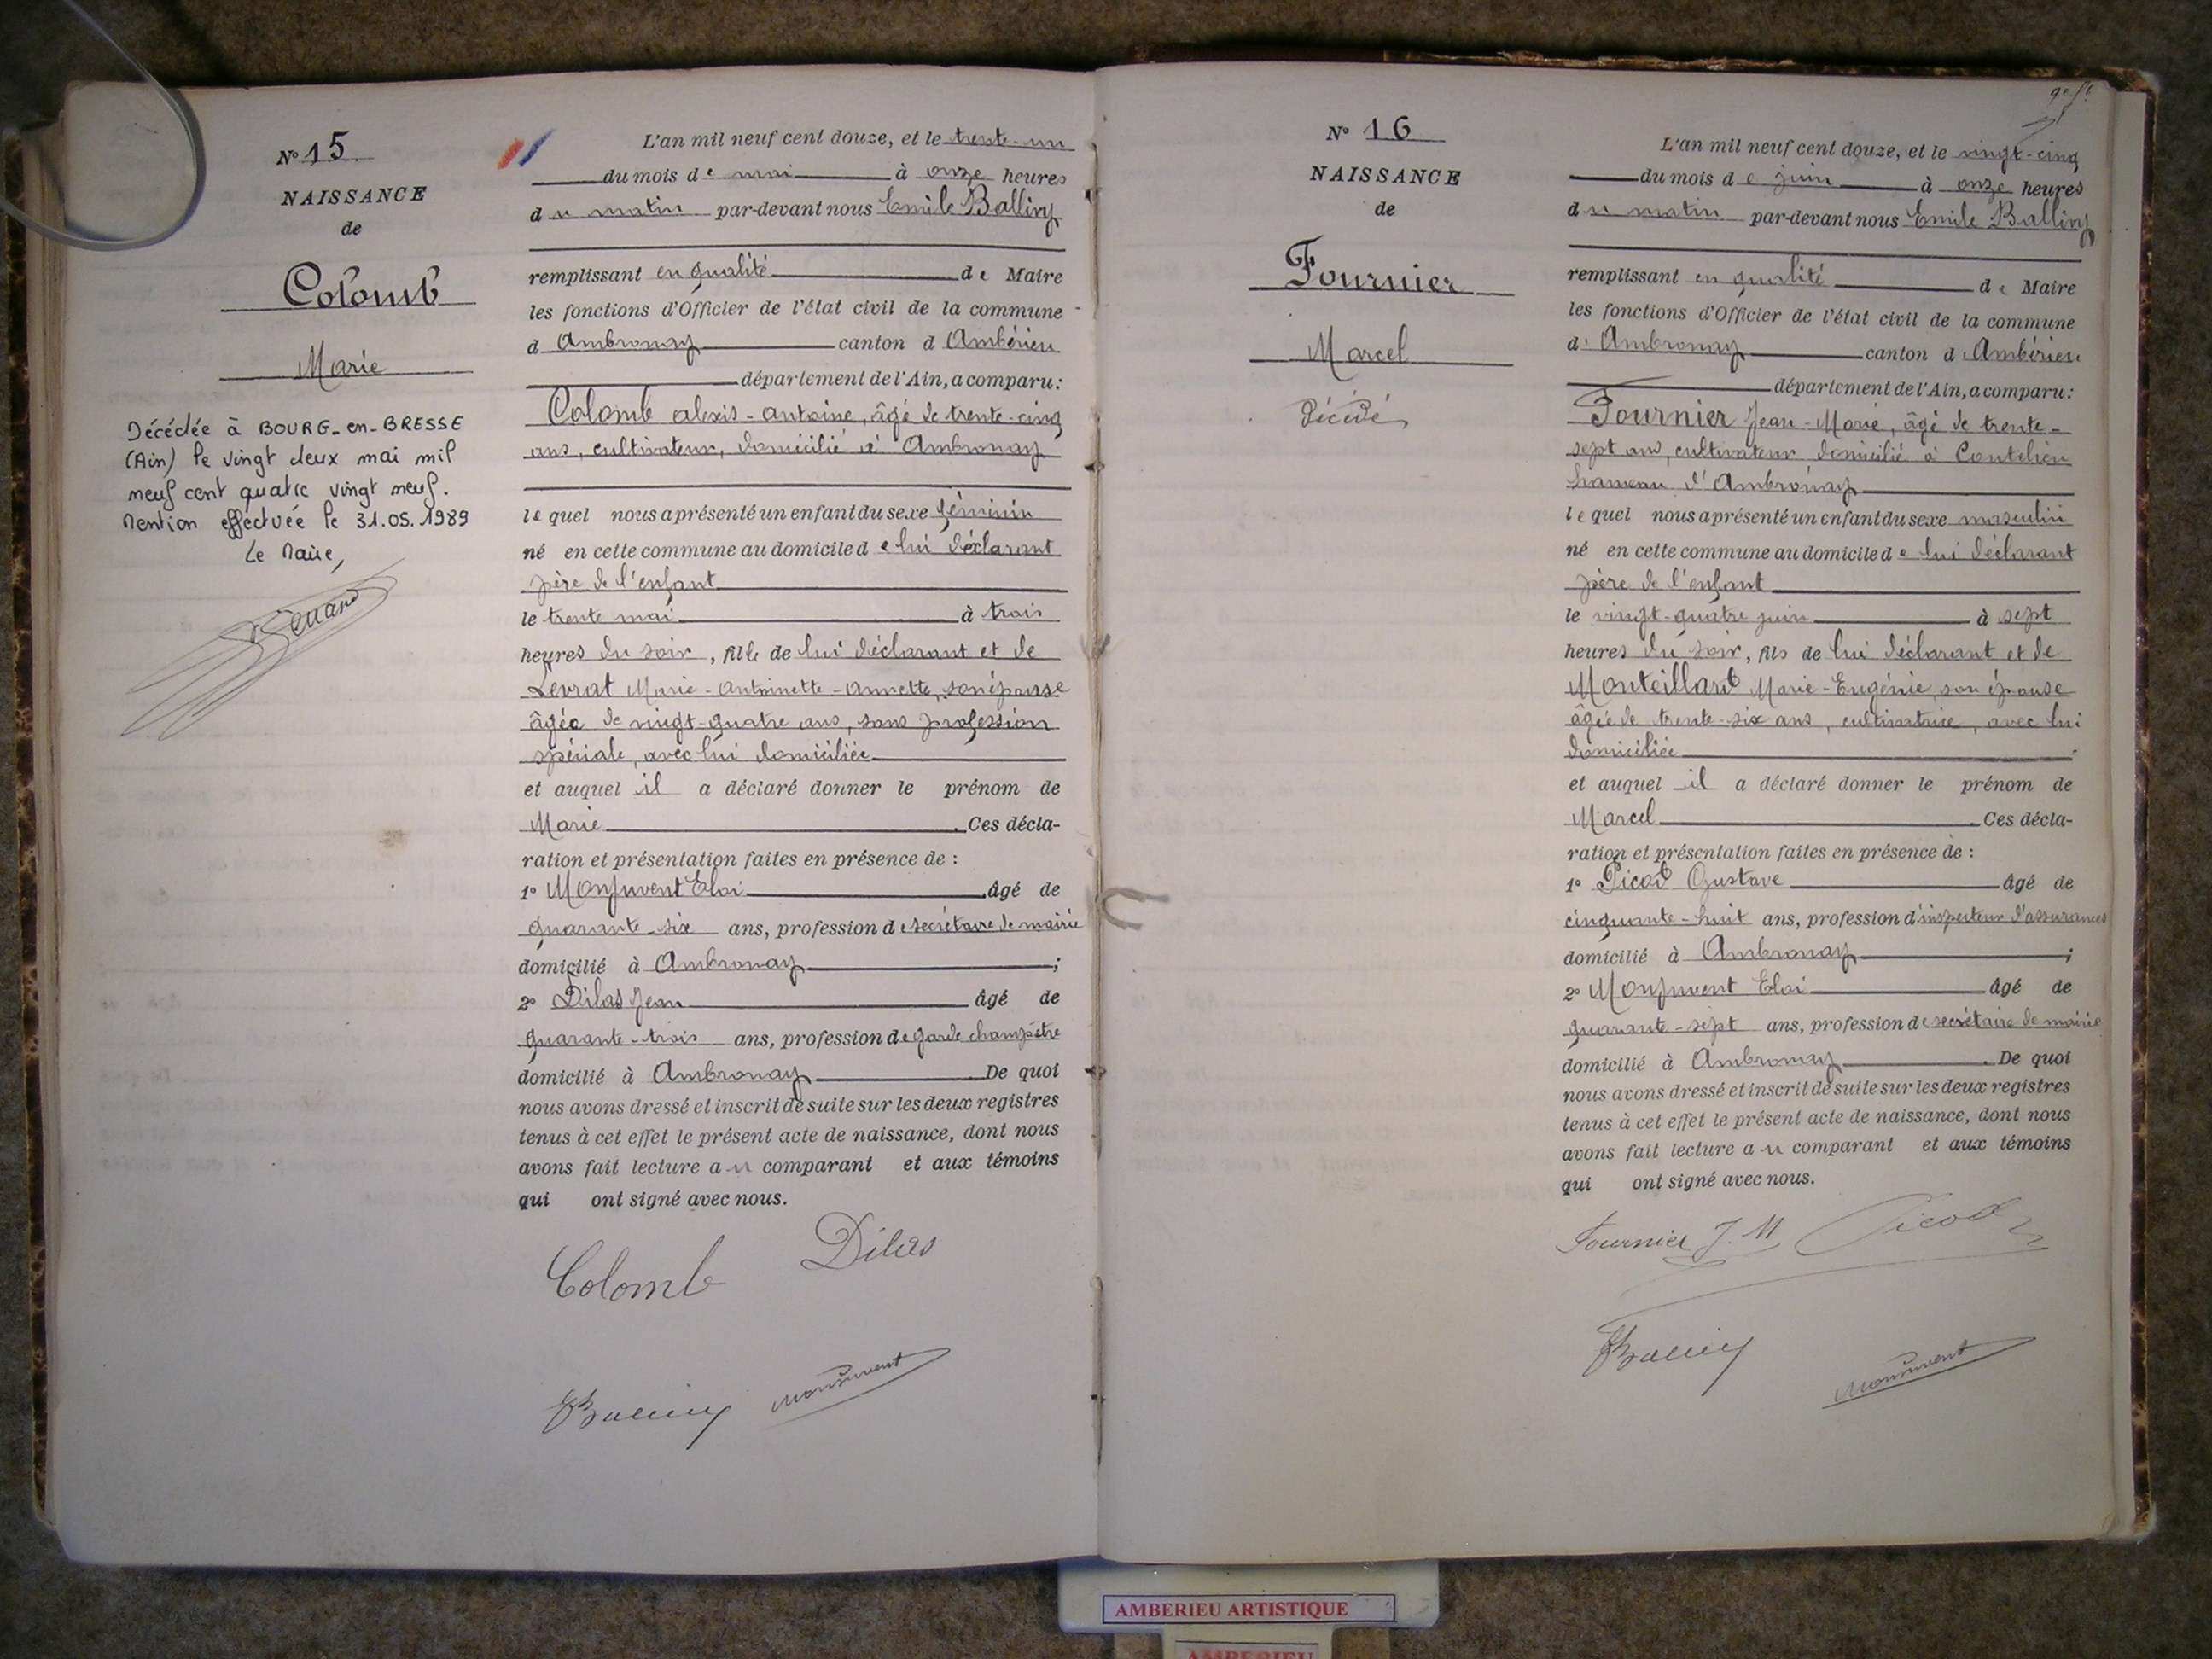 N° 15
NAISSANCE
de
Colomb
Marie
Décédée à BOURG-en-BRESSE
(Ain) le vingt deux mai mil
neuf cent quatre vingt neuf.
Mention effectuée le 31.05.1989
Le Maire,
L'an mil neuf cent douze, et le trente-un
du mois de mai à onze heures
du matin par-devant nous Emile Ballivy
remplissant en qualité de Maire
les fonctions d'Officier de l'état civil de la commune
d Ambronay canton d Ambérieu
département de l'Ain, a comparu:
Colomb alexis-antoine, âgé de trente-cinq
ans, cultivateur, domicilié à Ambronay
lequel nous a présenté un enfant du sexe féminin
né en cette commune au domicile de lui déclarant
père de l'enfant
le trente mai à trois
heures du soir, fille de lui déclarant et de
Levrat Marie-antoinette-annette, son épouse
âgée de vingt-quatre ans, sans profession
spéciale, avec lui domiciliée
et auquel il a déclaré donner le prénom de
Marie. Ces décla-
ration et présentation faites en présence de :
1° Monjuvent Eloi âgé de
quarante-six ans, profession de secrétaire de mairie
domicilié à Ambronay ;
2° Dilas Jean âgé de
quarante-trois ans, profession de garde champêtre
domicilié à Ambronay De quoi
nous avons dressé et inscrit de suite sur les deux registres
tenus à cet effet le présent acte de naissance, dont nous
avons fait lecture au comparant et aux témoins
qui ont signé avec nous.
Colomb Dilas
Ballivy Monjuvent
N° 16
NAISSANCE
de
Fournier
Marcel
Décédé
L'an mil neuf cent douze, et le vingt-cinq
du mois de juin à onze heures
du matin par-devant nous Emile Ballivy
remplissant en qualité de Maire
les fonctions d'Officier de l'état civil de la commune
d' Ambronay canton d'Ambérieu
département de l'Ain, a comparu:
Fournier Jean-Marie, âgé de trente-
sept ans, cultivateur domicilié à Coutelieu
hameau d'Ambronay
lequel nous a présenté un enfant du sexe masculin
né en cette commune au domicile de lui déclarant
père de l'enfant
le vingt-quatre juin à sept
heures du soir, fils de lui déclarant et de
Monteillard Marie-Eugénie, son épouse
âgée de trente-six ans, cultivatrice, avec lui
domiciliée
et auquel il a déclaré donner le prénom de
Marcel. Ces décla-
ration et présentation faites en présence de :
1° Picod Gustave âgé de
cinquante-huit ans, profession d'inspecteur d'assurances
domicilié à Ambronay ;
2° Monjuvent Eloi âgé de
quarante-sept ans, profession de secrétaire de mairie
domicilié à Ambronay. De quoi
nous avons dressé et inscrit de suite sur les deux registres
tenus à cet effet le présent acte de naissance, dont nous
avons fait lecture au comparant et aux témoins
qui ont signé avec nous.
Fournier J. M Picod
Ballivy Monjuvent
AMBERIEU ARTISTIQUE
AMBERIEU